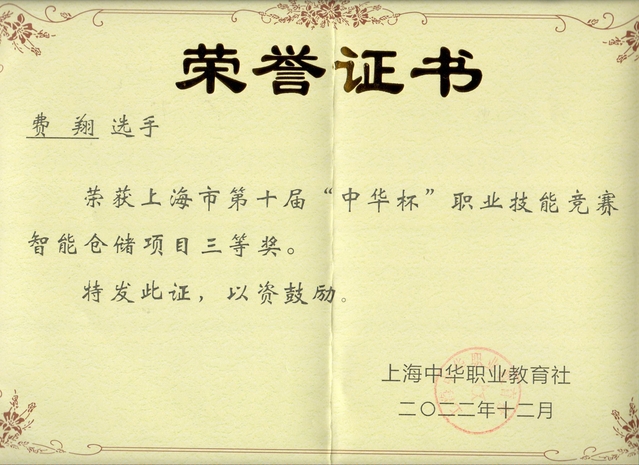 荣誉证书
费 翔 选手
荣获上海市第十届“中华杯”职业技能竞赛
智能仓储项目三等奖。
特发此证，以资鼓励。
上海中华职业教育社
二〇二二年十二月